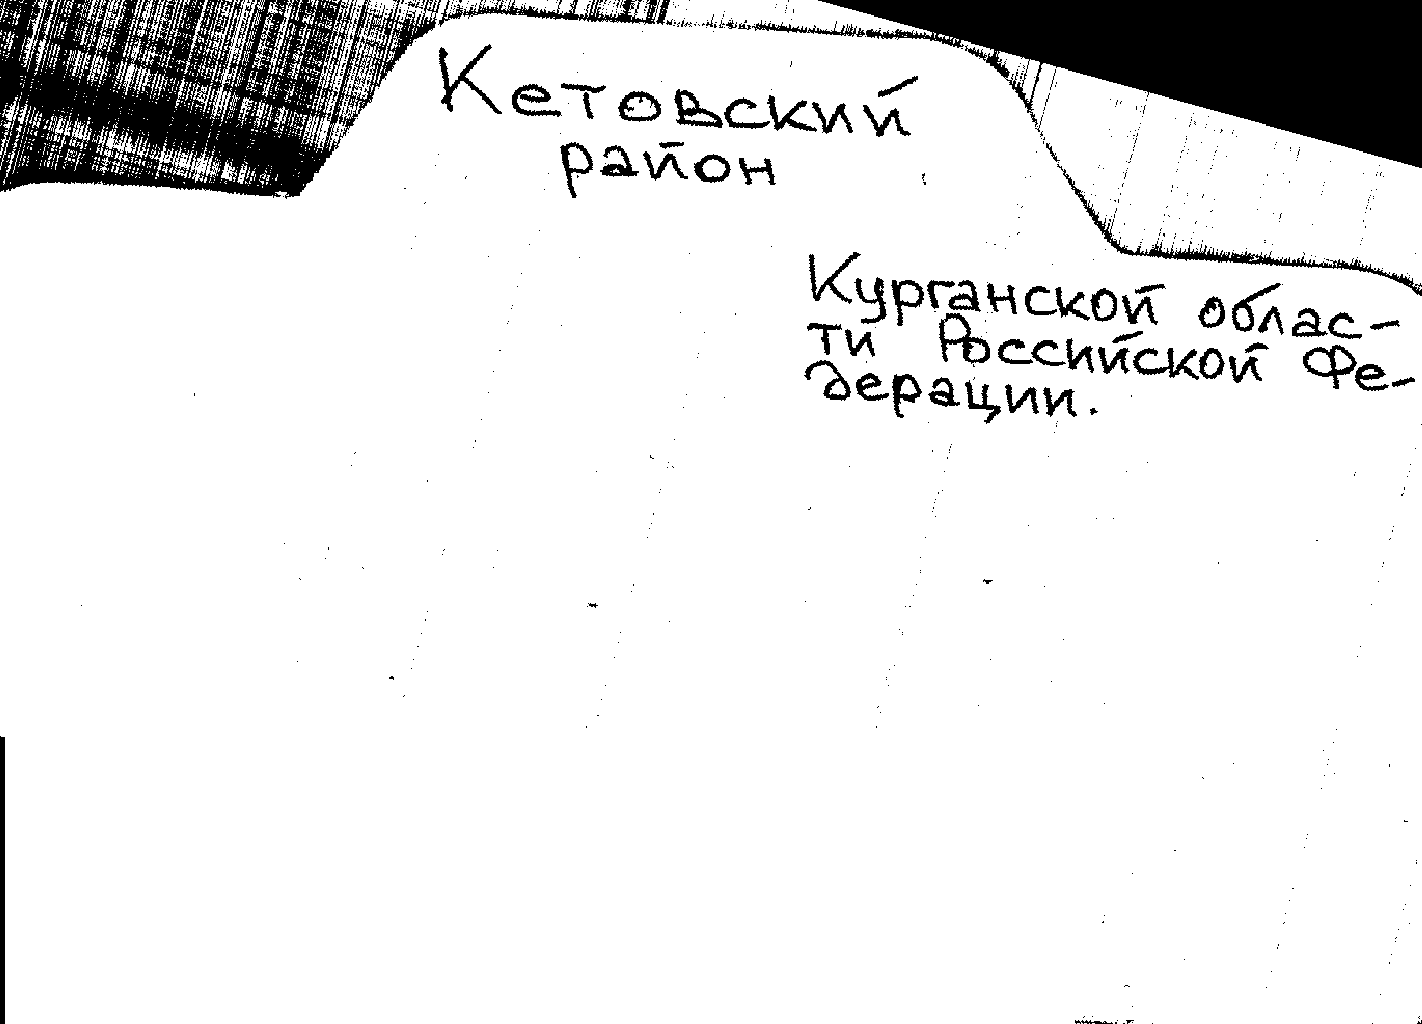 Кетовский
район
Курганской облас-
ти Российской Фе-
дерации.